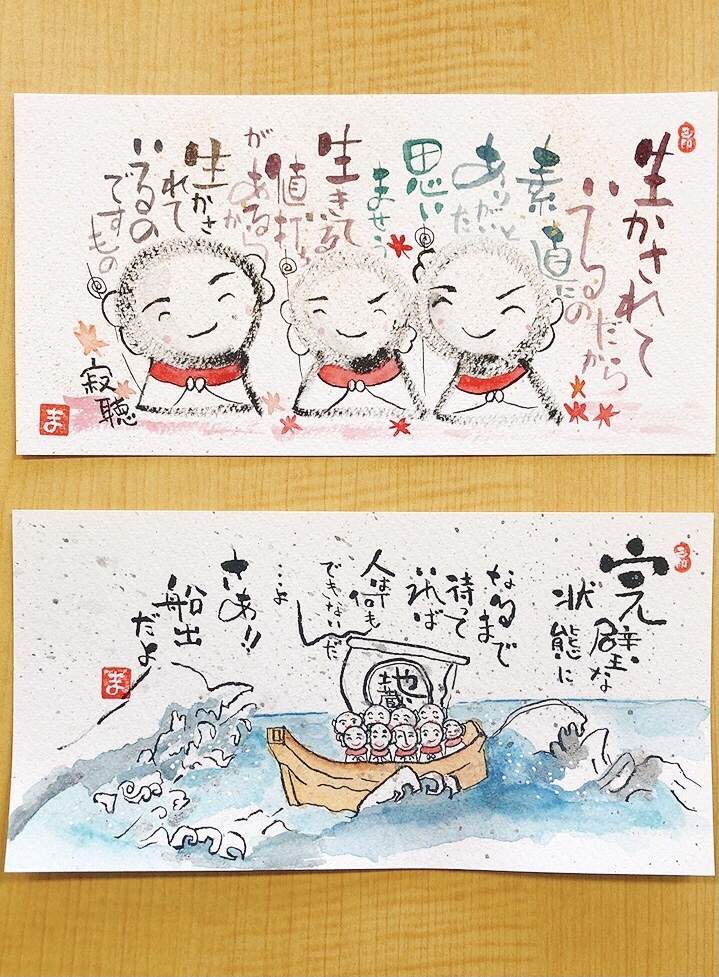 生かされて
いるのだから
素直に
ありがたいと
思い
ませう
生きて
いる
値打ち
があるから
生かされて
いるの
ですもの
寂聴
ま
完璧な
状態に
なるまで
待って
いれば
人は何も
できないんだ
…よ
さあ!!
船出
だよ
地蔵
ま